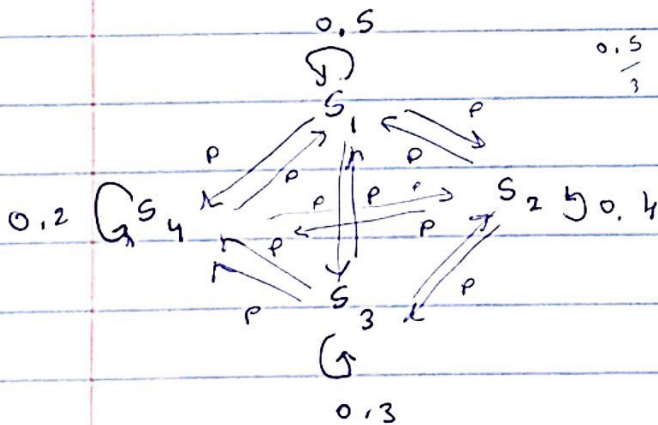 0.5
0.5
/
3
S1
P
P
P
P
0.2
S4
P
P
P
P
P
S2
0.4
P
P
S3
0.3